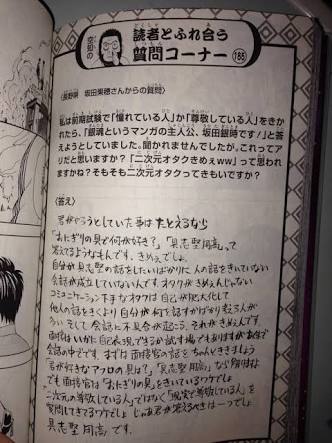 空知の
読者とふれ合う
質問コーナー
185
〈長野県 坂田果穂さんからの質問〉
私は前期試験で「憧れている人」か「尊敬している人」をきか
れたら、「銀魂というマンガの主人公、坂田銀時です!」と答
えようとしていました。聞かれませんでしたが、これってア
リだと思いますか?「二次元オタクきめぇww」って思われ
ますかね?そもそも二次元オタクってきもいですか?
〈答え〉
君がやろうとしていた事は たとえるなら
「おにぎりの具で何が好き?」「具志堅用高」って
答えてるようなもんです。きめぇでしょ。
自分が具志堅の話をしたいばかりに 人の話をきいていない
会話が成立していないんです。オタクがきめぇんじゃない
コミュニケーション下手なオタクは自己が肥大化して
他人の話をきくより自分が何を話すかばかり考える人が
そして 会話に不具合が起こる。それがきめぇんです
面接はいかに自己表現できるか試す場でもありますがあくまで
会話の中でです。まずは面接官の話を ちゃんとききましょう
「君が好きなアフロの男は?」「具志堅用高」なら
でも面接官は「おにぎりの具」をきいているワケでしょ
二次元の尊敬している人」ではなく「現実で尊敬している人」を
質問してきてるワケでしょ じゃあ君が答えるべきは一つでしょ
具志堅用高 です。